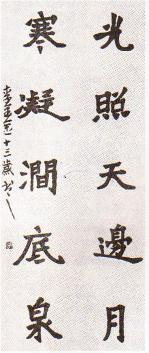 光照天邊月
寒凝澗底泉
十三歲書